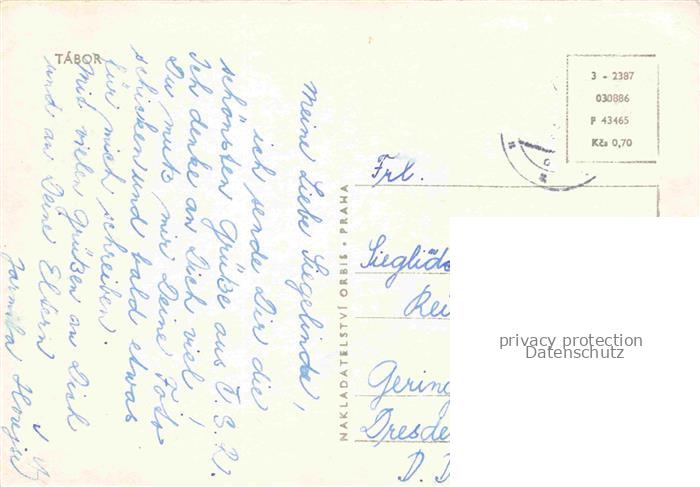 TÁBOR
Meine Liebe Siegelinde!
ich sende Dir die
schönsten Grüße aus Č.S.R.
Ich denke an Dich viel!
Du mutz mir Deine Foto
schicken und bald etwas
für mich schreiben.
Mit vielen Grüßen an Dich
und an Deine Eltern
Jarmila
NAKLADATELSTVÍ ORBIS • PRAHA
3 - 2387
030886
F 43465
Kčs 0,70
Frl.
Rei
Gering
Dresde
D. D
privacy protection
Datenschutz